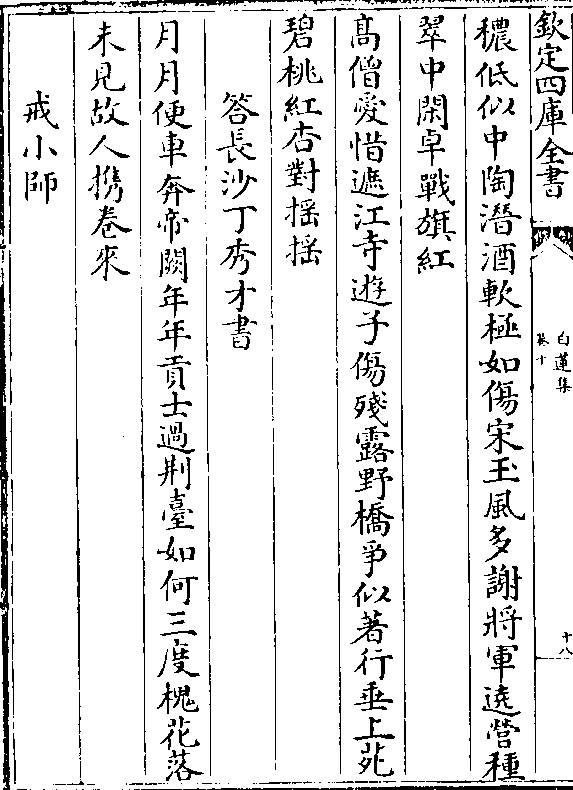 欽定四庫全書
白蓮集
卷十
十八
穠低似中陶潛酒軟極如傷宋玉風多謝將軍遶營種
翠中閑卓戰旗紅
髙僧愛惜遮江寺遊子傷殘露野橋爭似著行垂上苑
碧桃紅杏對揺揺
答長沙丁秀才書
月月便車奔帝闕年年貢士過荆臺如何三度槐花落
未見故人攜卷來
戒小師